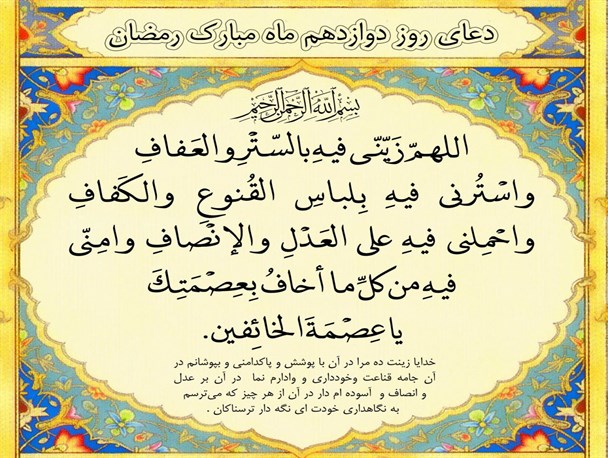 دعای روز دوازدهم ماه مبارک رمضان
بِسْمِ اللهِ الرَّحْمنِ الرَّحِيمِ
اللهمّ زَيّنّي فيهِ بالسّتْرِ والعَفافِ
واسْتُرني فيهِ بِلِباسِ القُنوعِ والكَفافِ
واحْمِلني فيهِ على العَدْلِ والإنْصافِ وامِنّي
فيهِ من كلّ ما أخافُ بِعِصْمَتِكَ
ياعِصْمَةَ الخائِفين.
خدایا زینت ده مرا در آن با پوشش و پاکدامنی و بپوشانم در
آن جامه قناعت وخودداری و وادارم نما در آن بر عدل
و انصاف و آسوده ام دار در آن از هر چیز که می‌ترسم
به نگاهداری خودت ای نگه دار ترسناکان .